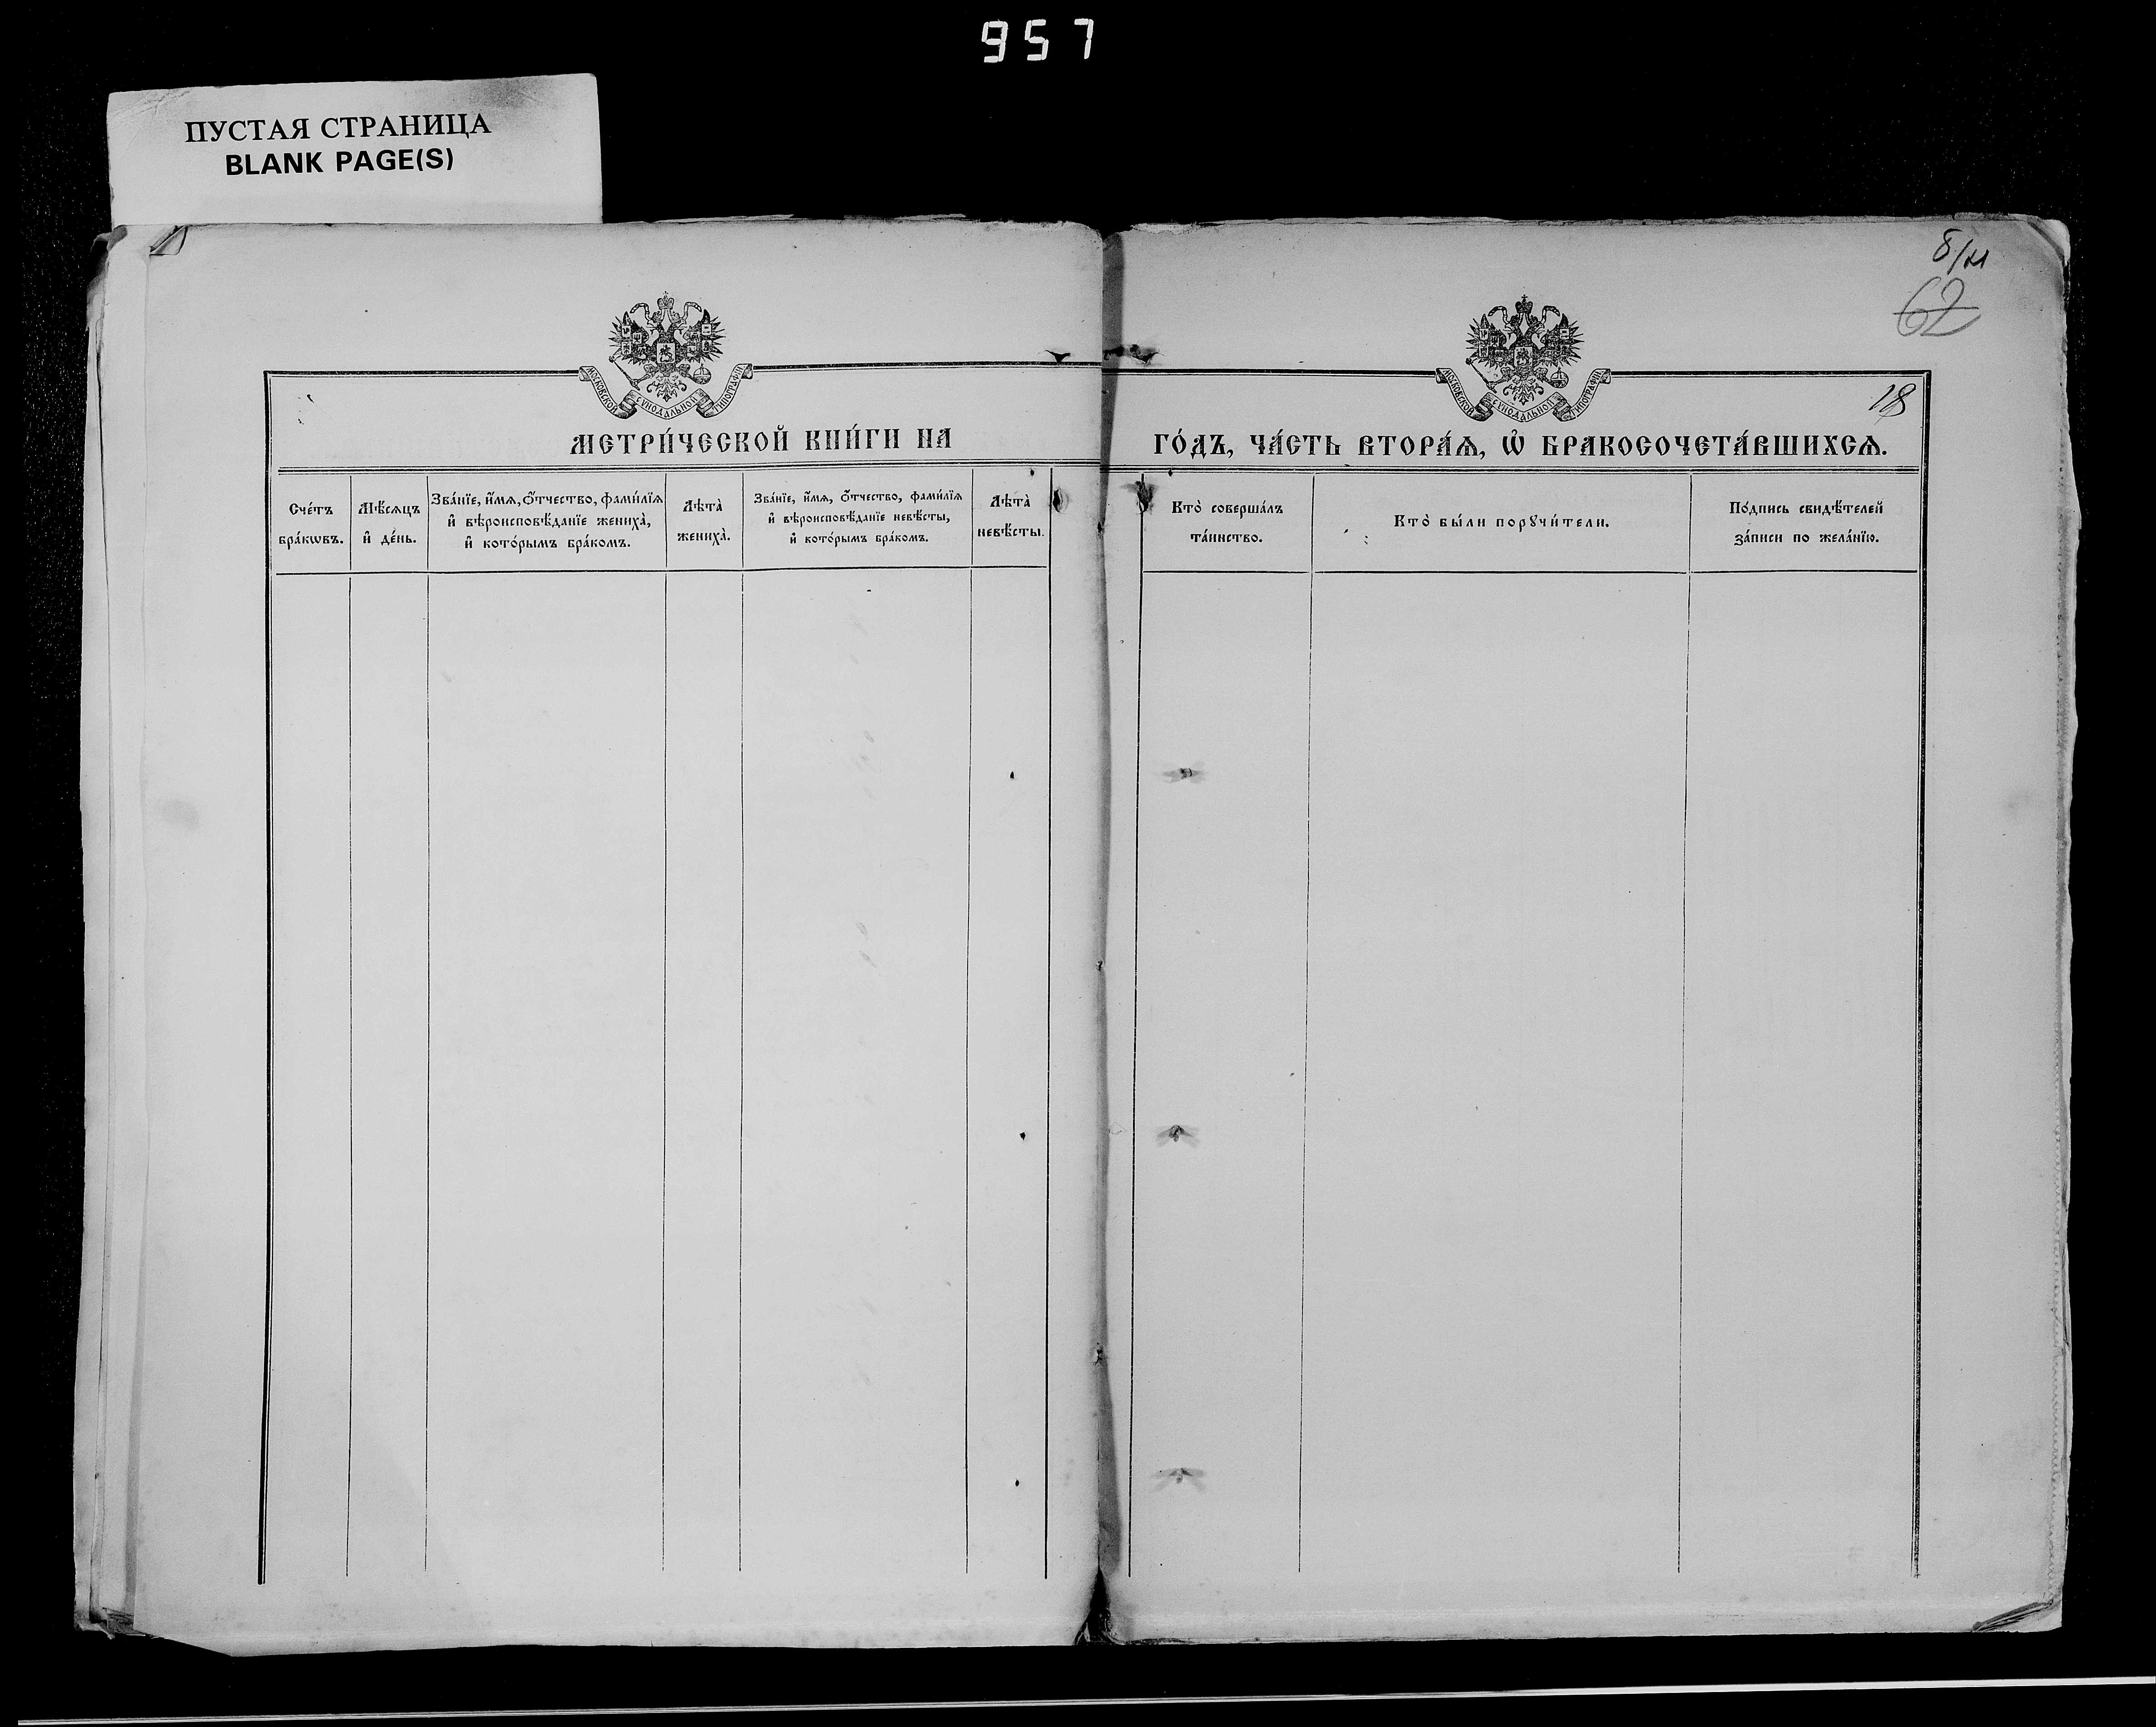 957
ПУСТАЯ СТРАНИЦА
BLANK PAGE(S)
б/н
62
18
МОСКОВСКОЙ СѴНОДАЛЬНОЙ ТИПОГРАФІИ
МОСКОВСКОЙ СѴНОДАЛЬНОЙ ТИПОГРАФІИ
МЕТРИ́ЧЕСКОЙ КНИ́ГИ НА ГО́ДЪ, ЧА́СТЬ ВТОРА́Ѧ, Ѡ҆ БРАКОСОЧЕТА́ВШИХСѦ.
Сче́тъ
бра́кѡвъ.
Мѣ́сѧцъ
и҆ де́нь.
Зва́нїе, и҆́мѧ, ѻ҆́тчество, фами́лїѧ
и҆ вѣроисповѣ́данїе жениха̀,
и҆ кото́рымъ бра́комъ.
Лѣта̀
жениха̀.
Зва́нїе, и҆́мѧ, ѻ҆́тчество, фами́лїѧ
и҆ вѣроисповѣ́данїе невѣ́сты,
и҆ кото́рымъ бра́комъ.
Лѣта̀
невѣ́сты.
Кто̀ соверша́лъ
та́инство.
Кто̀ бы́ли порꙋчи́тели.
По́дпись свидѣ́телей
за́писи по жела́нїю.